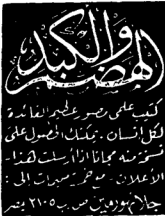 الهضم والكبد
كتيب علمي مصور عظيم الفائدة
لكل انسان . يمكنك الحصول على
نسخة منه مجانا اذا أرسلت هذا
الاعلان . مع خمسة مليمات الى :
جلانهورفين ص . ب ٢١٠٥ مصر